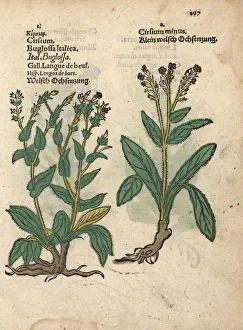 267
1.
Κίρσιον.
Cirsium.
Buglossa Italica.
Ital. Buglossa.
Gall. Langue de beuf.
Hisp. Lengua de buey.
Welsch Ochsenzung.
2.
Cirsium minus.
Klein welsch Ochsenzung.